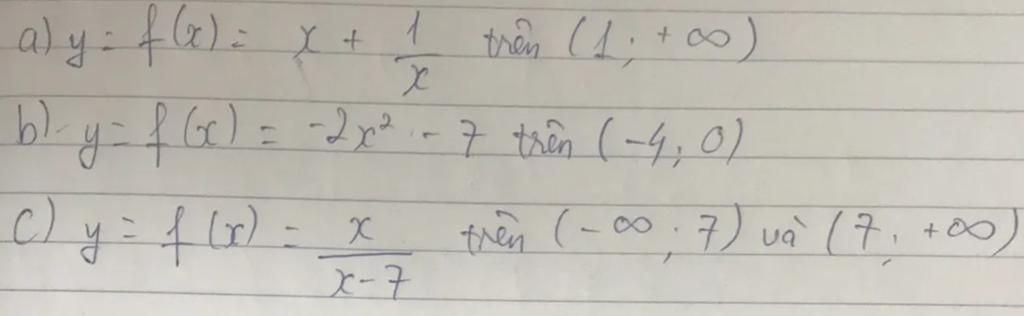 a) y = f(x) = x + 1/x trên (1; +∞)
b) y = f(x) = -2x² - 7 trên (-4; 0)
c) y = f(x) = x/(x-7) trên (-∞; 7) và (7; +∞)